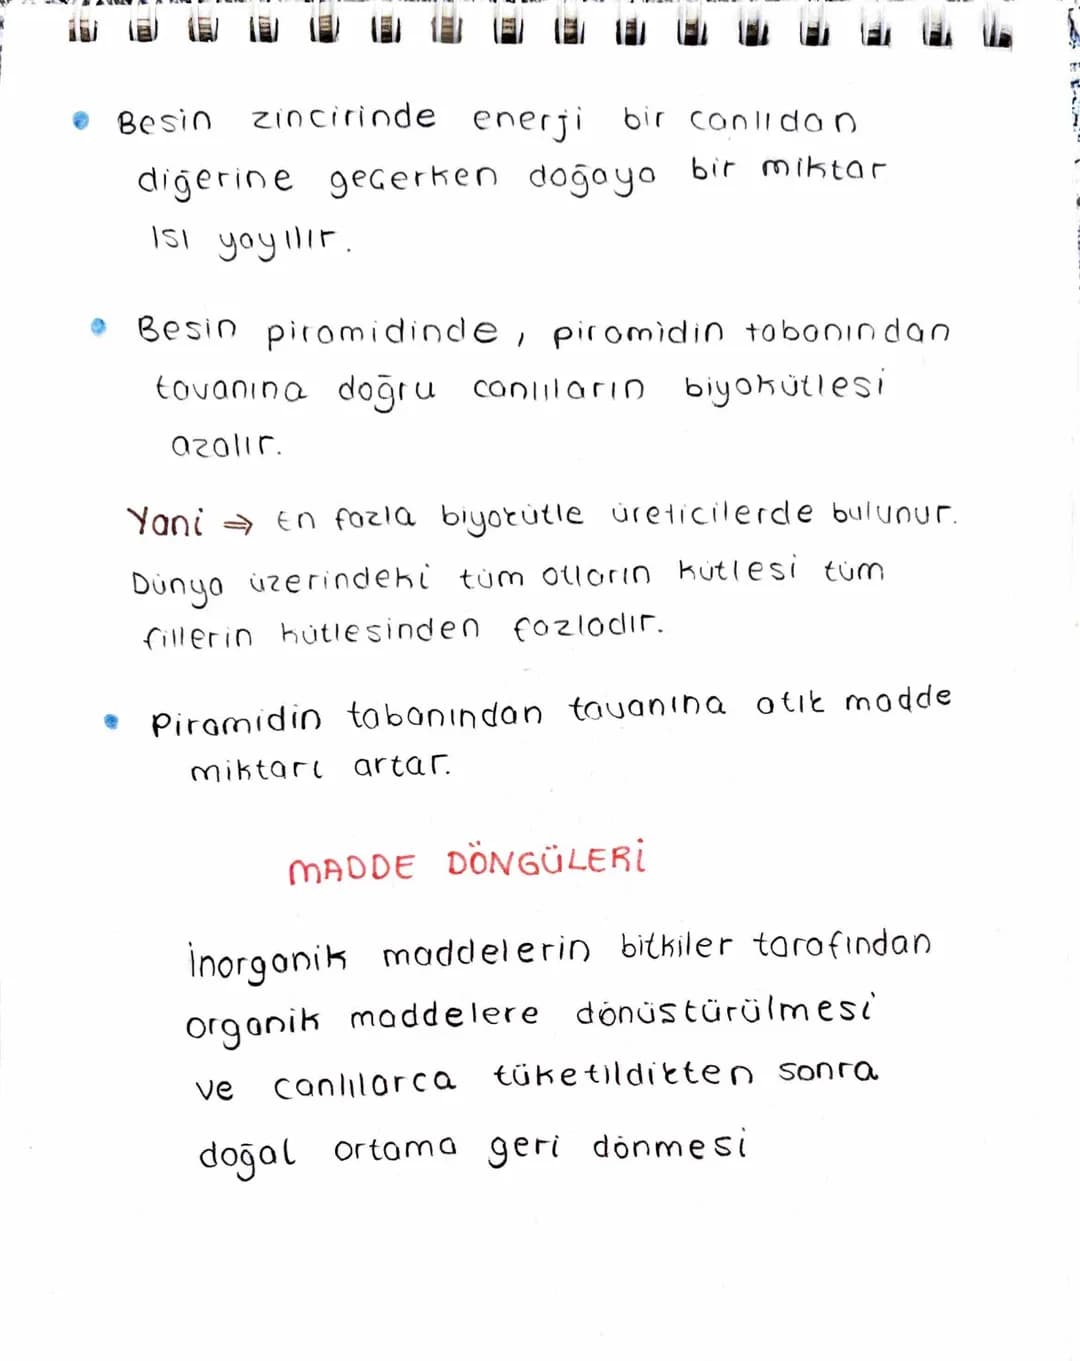 Besin zincirinde enerji bir canlıdan
diğerine geçerken doğaya bir miktar
ısı yayılır.
Besin piramidinde, piramidin tabanından
tavanına doğru canlıların biyokütlesi
azalır.
Yani ⇒ En fazla biyokütle üreticilerde bulunur.
Dünya üzerindeki tüm otların kütlesi tüm
fillerin kütlesinden fazladır.
Piramidin tabanından tavanına atık madde
miktarı artar.
MADDE DÖNGÜLERİ
İnorganik maddelerin bitkiler tarafından
organik maddelere dönüştürülmesi
ve canlılarca tüketildikten sonra
doğal ortama geri dönmesi